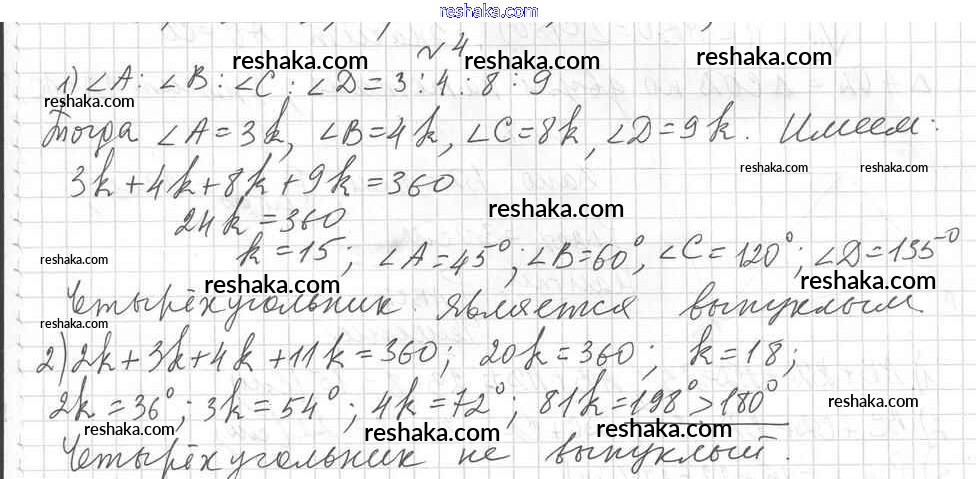 reshaka.com
№ 4
reshaka.com reshaka.com
1) ∠A : ∠B : ∠C : ∠D = 3 : 4 : 8 : 9
reshaka.com
Тогда ∠A = 3k, ∠B = 4k, ∠C = 8k, ∠D = 9k. Имеем:
reshaka.com reshaka.com
3k + 4k + 8k + 9k = 360
reshaka.com
24k = 360
k = 15; ∠A = 45°; ∠B = 60°, ∠C = 120°; ∠D = 135°
reshaka.com
reshaka.com reshaka.com
Четырёхугольник является выпуклым
reshaka.com
2) 2k + 3k + 4k + 11k = 360; 20k = 360; k = 18;
2k = 36°; 3k = 54°; 4k = 72°; 81k = 198° > 180°
reshaka.com
reshaka.com reshaka.com reshaka.com
Четырёхугольник не выпуклый.